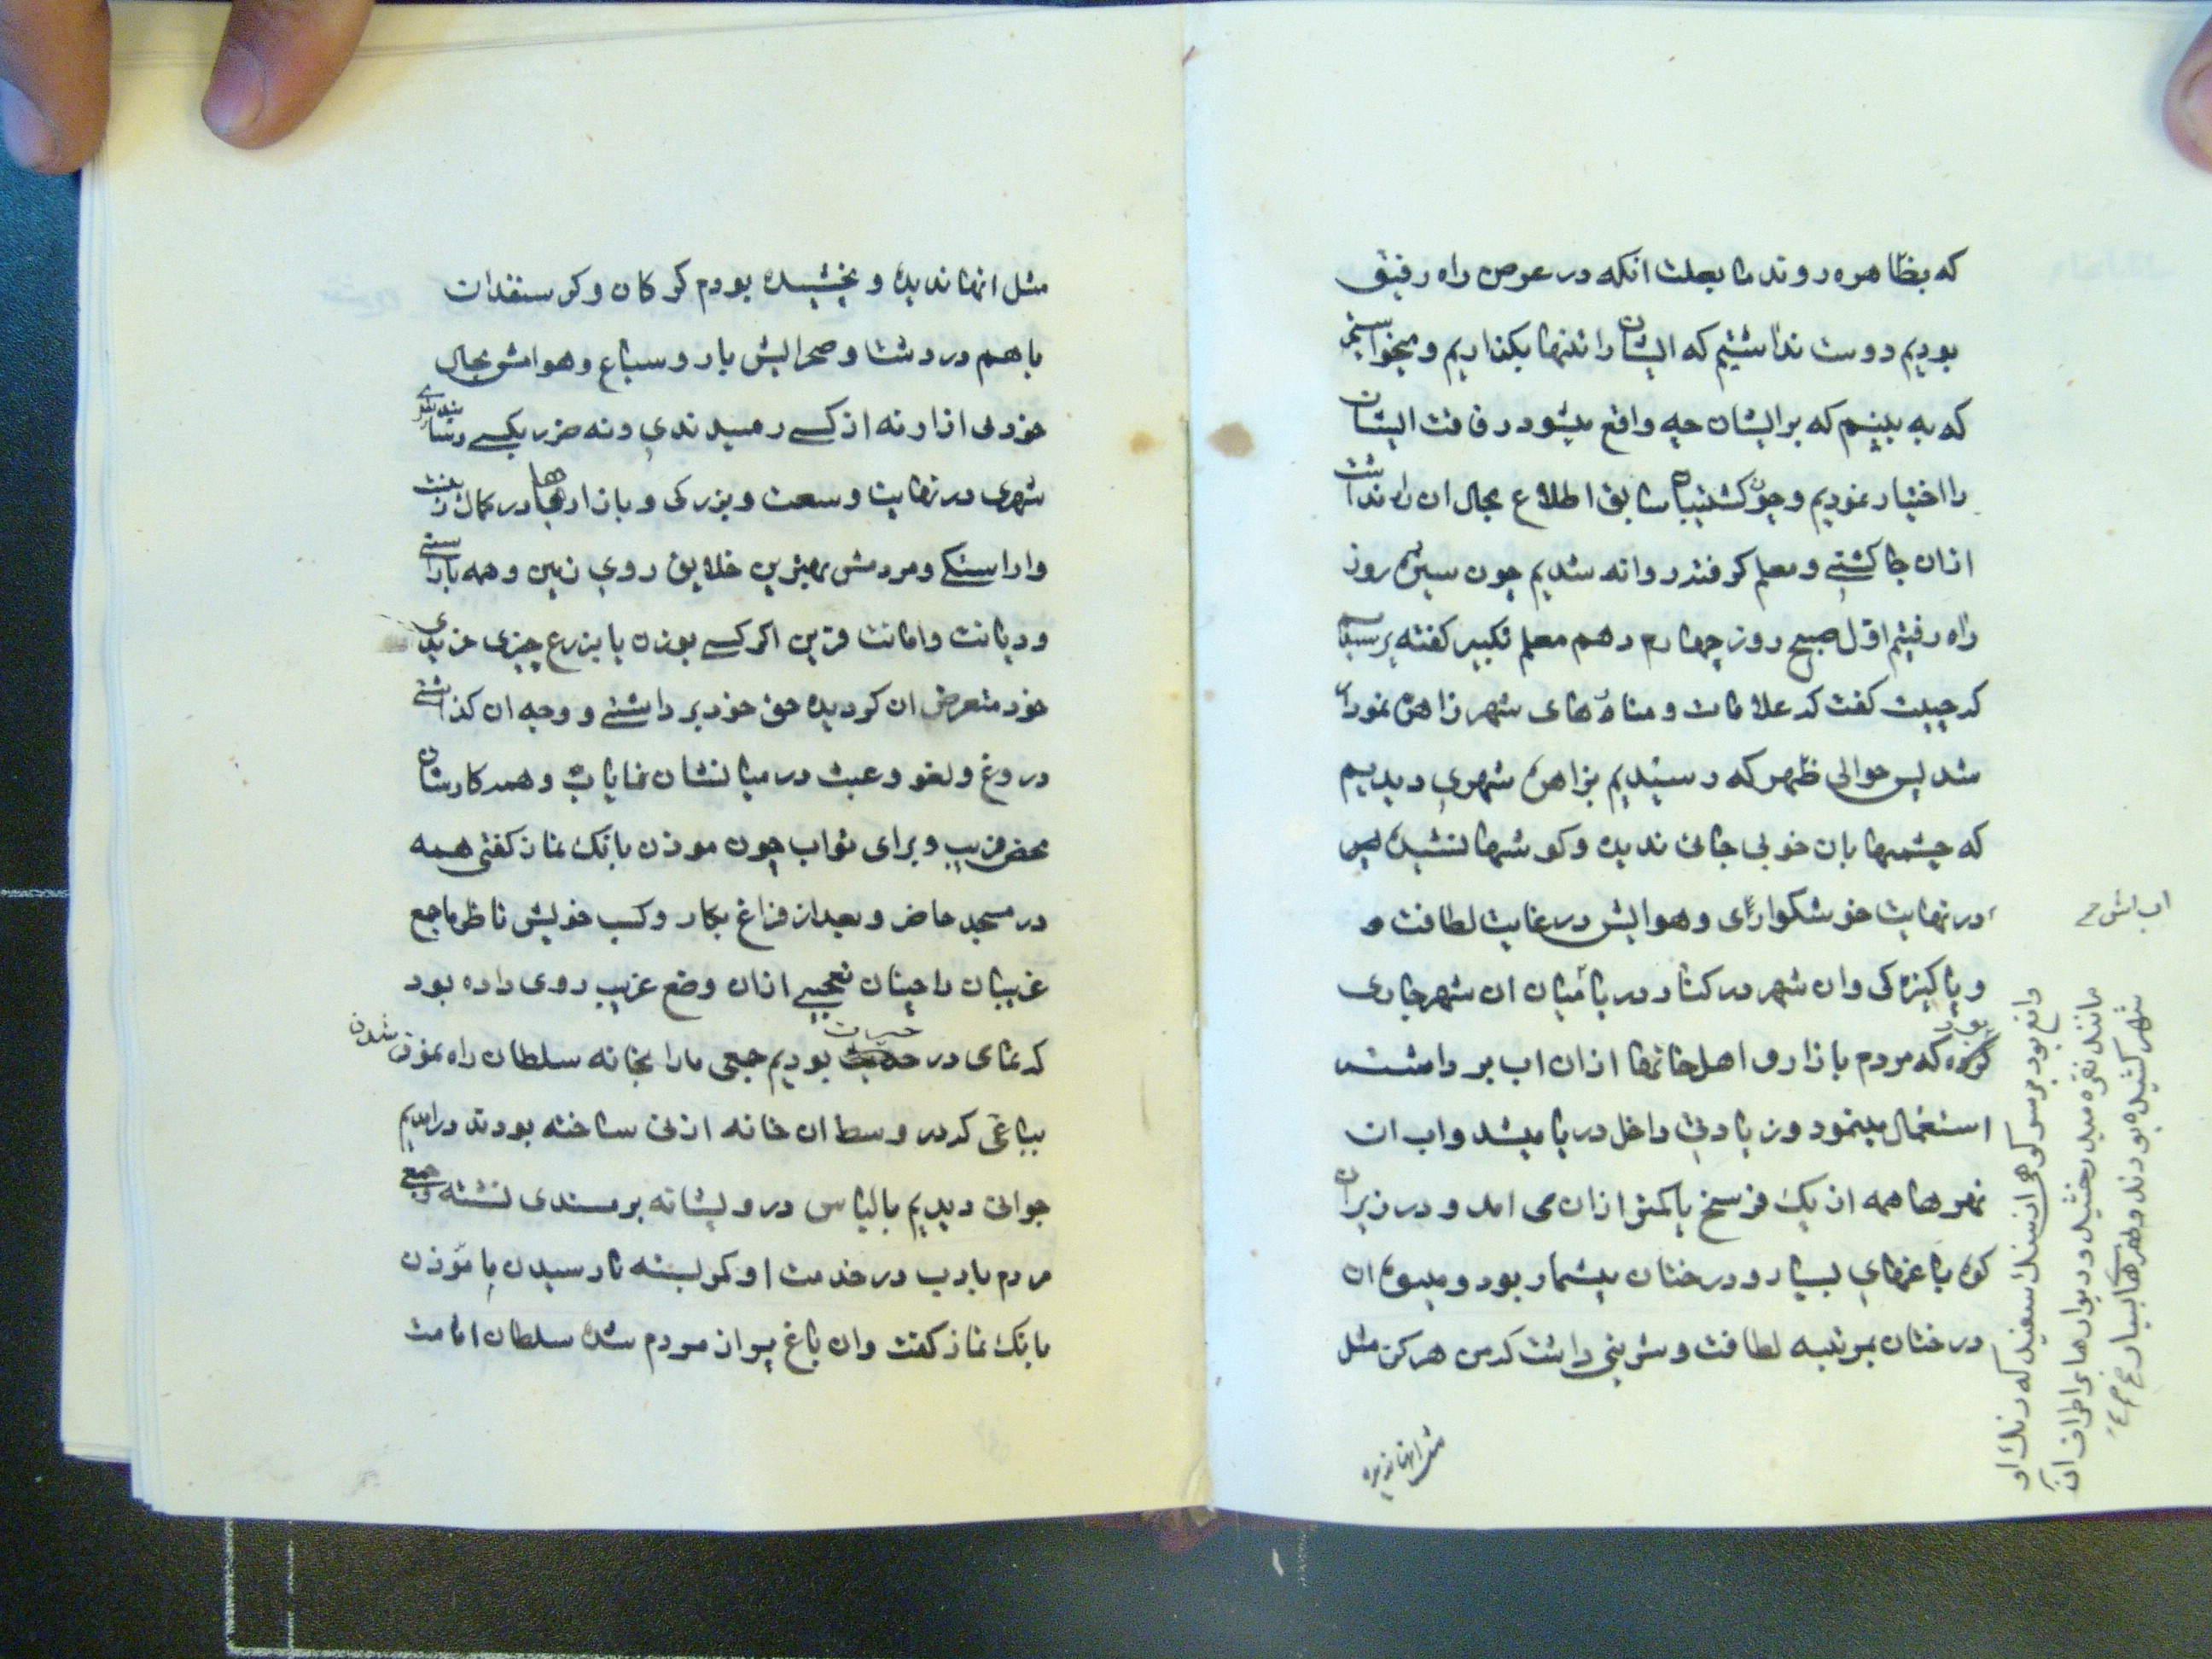 که بظاهره روند ما بعلت انکه در عرض راه رفیق
بودیم دوست نداشتیم که ایشان را تنها بکذاریم و میخواستیم
که به بینیم که بر ایشان چه واقع میشود رفاقت ایشان
را اختیار نمودیم و چون کشتیبان سابق اطلاع بحال ان راه نداشت
ازان جا کشتی و معلم کرفته روانه شدیم چون سیزده روز
راه رفتیم اول صبح روز چهاردهم معلم تکبیر کفته پرسیدیم
که چیست کفت که علامات و مناره های شهر زاهره نمودار
شد پس حوالی ظهر که رسیدیم بزاهره شهری دیدیم
که چشمها بان خوبی جائی ندیده و کوشها نشنیده
در نهایت خوشکواری و هوایش در غایت لطافت و
و پاکیزه کی وان شهر در کنار دریا میان ان شهر جاری
که مردم بازار و اهل خانها ازان اب بر داشته
استعمال مینمود و زیادتی داخل دریا میشد واب ان
نهرها همه از یک فرسخ یا کمتر ازان می امد و در زیر ان
کوه باغهای بسیار و درختان بیشمار بود و میوه ان
درختان بمرتبه لطافت و شیرینی داشت که من هرکز مثل
اب اش
واقع بود بر سر کوهی از سنک سفید که رنک او
مانند نقره میدرخشید و دیوارها بر اطراف ان
شهر کشیده بودند و نهرها بسیار
مثل انها ندیده
مثل انها ندیده و نچشیده بودم کرکان و کوسفندان
باهم در دشت و صحرایش یار و سباع و هوامش بحال
خود بی ازار نه از کسی رمیدندی و نه ضرر بکسی رسانیدندی
شهری در نهایت وسعت و بزرکی و بازارها در کمال زینت
واراستکی و مردمش بهترین خلایق روی زمین و همه با راستی
و دیانت وامانت قرین اکر کسی بوزن یا بزرع چیزی خریدی
خود متعرض ان کردیده حق خود برداشتی و وجه ان کذاشتی
دروغ و لغو و عبث در میانشان نایاب و همه کارشان
محض و برای ثواب چون موذن بانک نماز کفتی همه
در مسجد حاضر و بعد از فراغ بکار و کسب خویش ناظر ما جمع
غریبان را چنان تعجبی ازان وضع غریب روی داده بود
که تمامی در حیرت بودیم جمعی ما را بخانه سلطان راه نمون شدند
بباغی که در وسط ان خانه از نی ساخته بودند درامدیم
جوانی دیدیم با لباس درویشانه بر مسندی نشسته وجمعی
مردم بادب در خدمت او کمر بسته تا رسیدن ما موذن
بانک نماز کفت وان باغ پر از مردم شده سلطان امامت